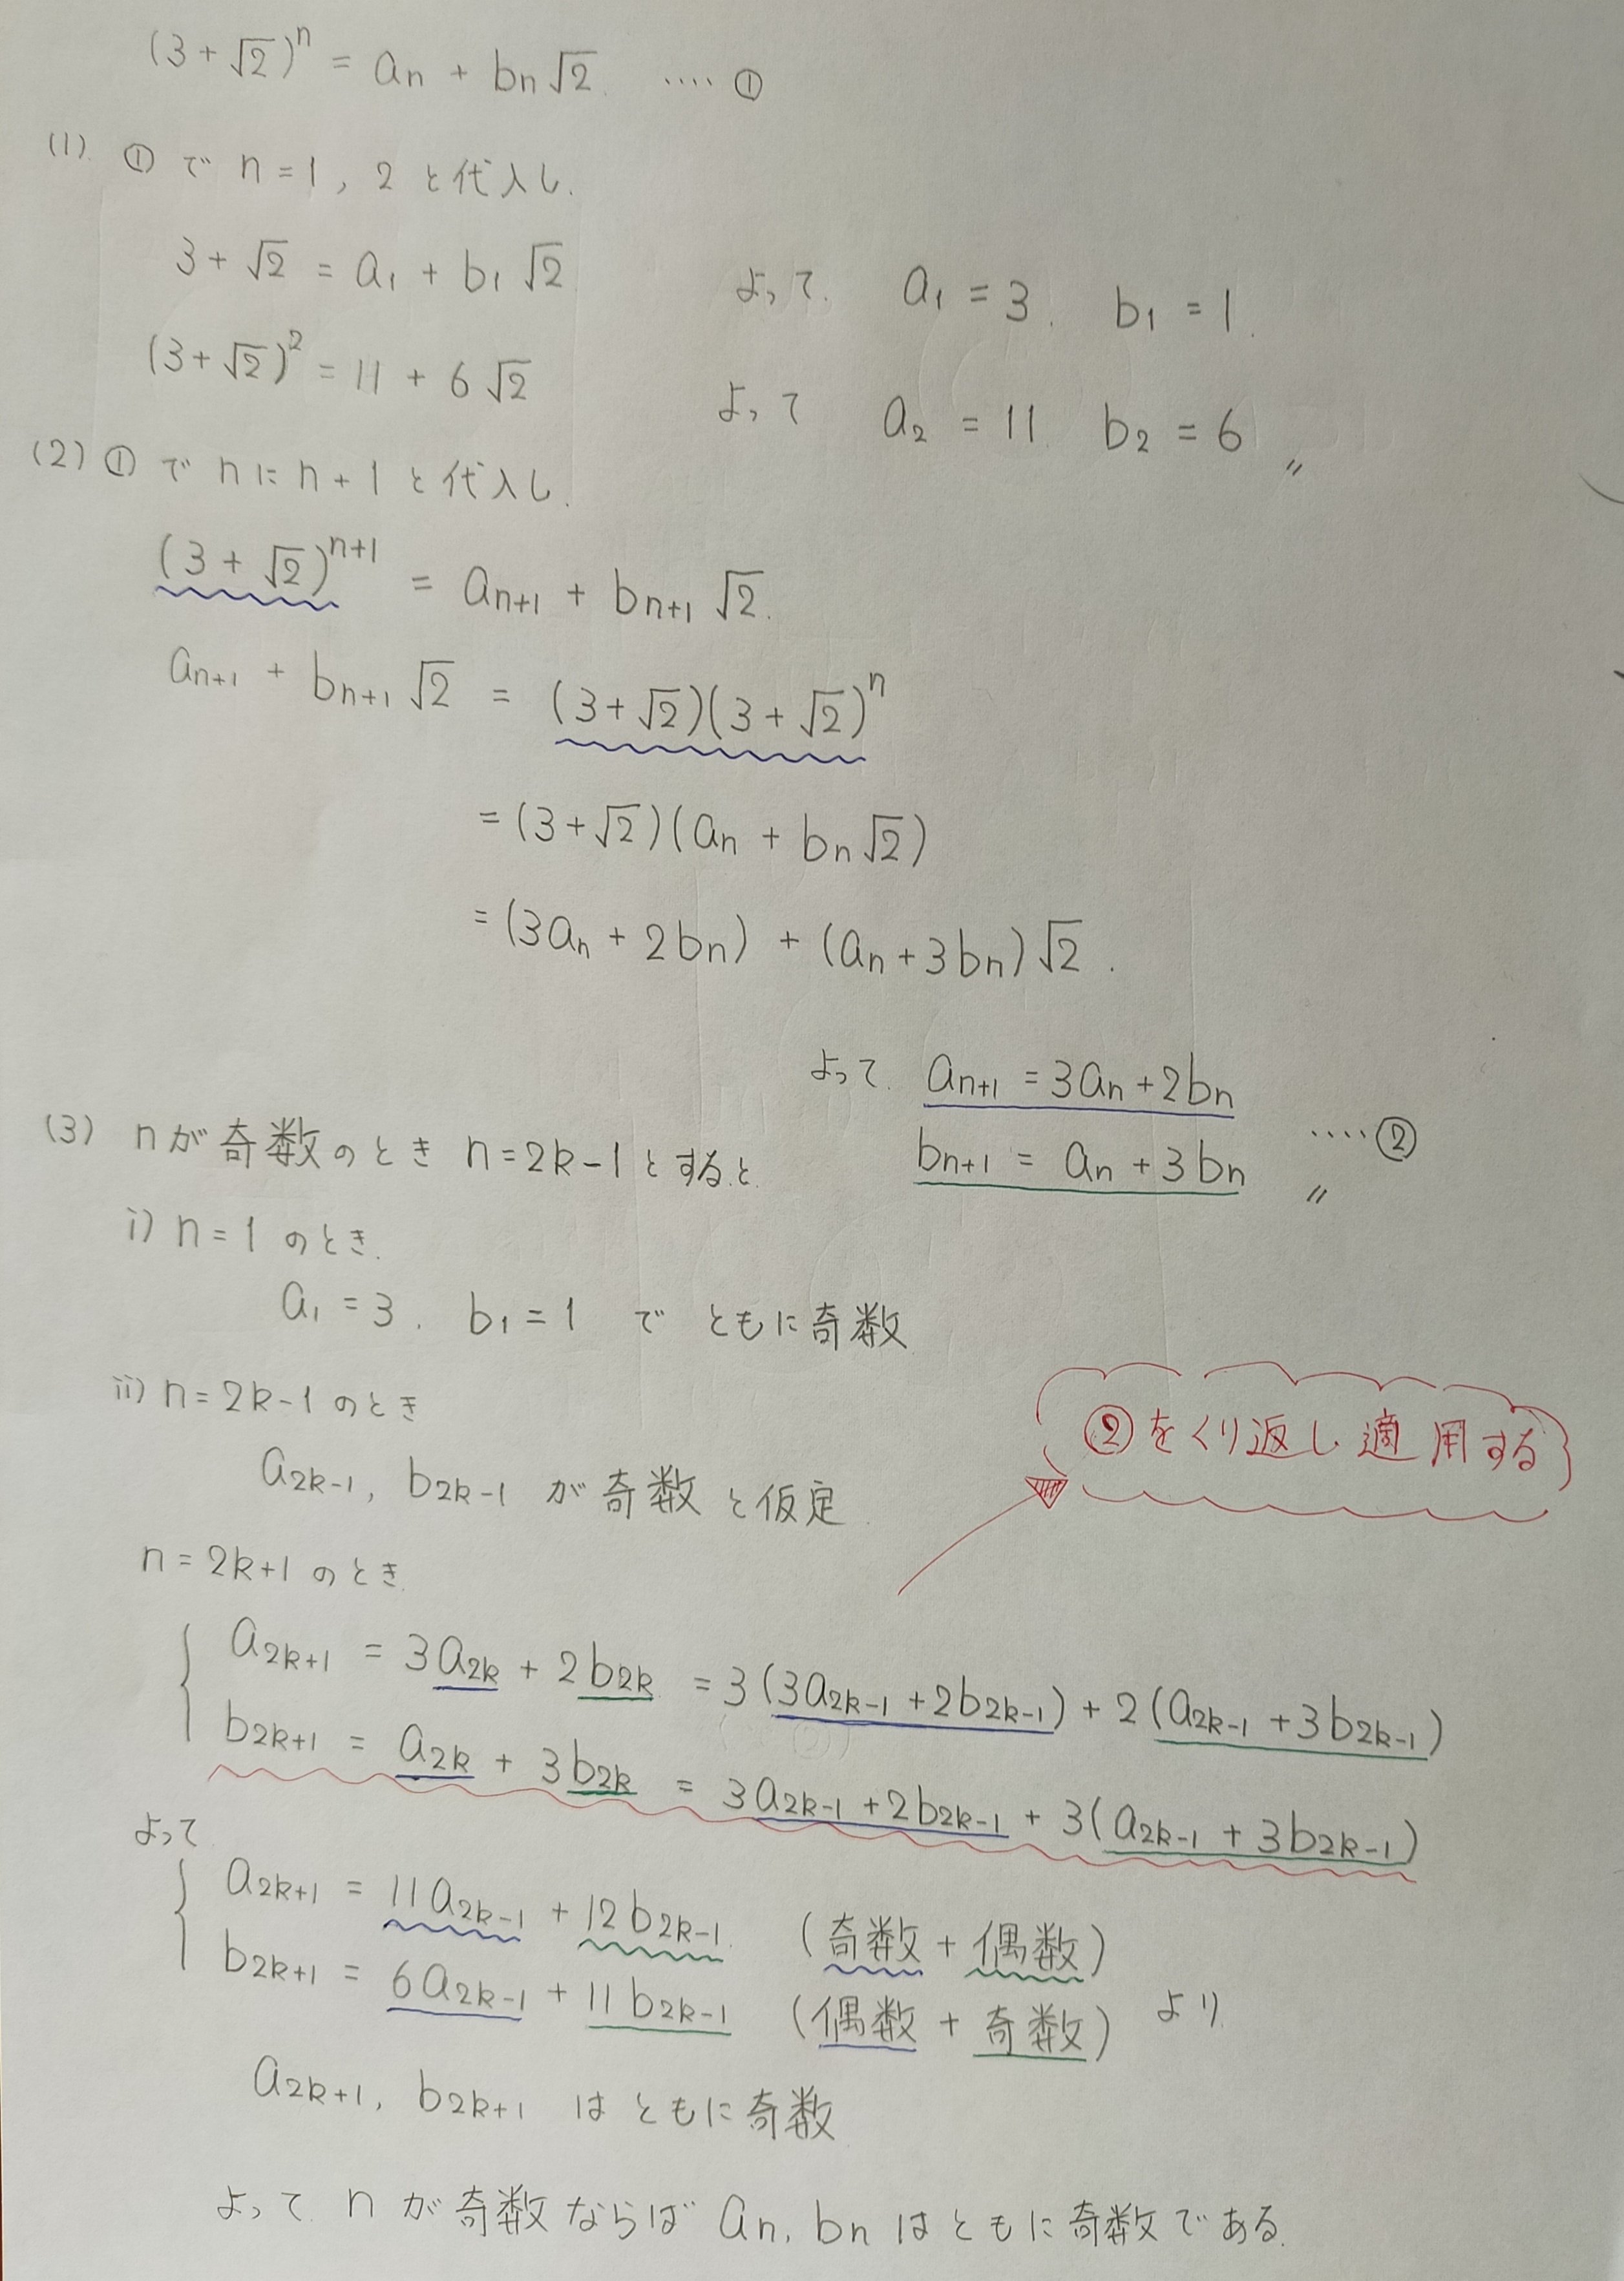 (3+√2)ⁿ = aₙ + bₙ√2 ‥‥ ①
(1) ① で n=1, 2 と代入し.
3+√2 = a₁ + b₁√2 よって. a₁ = 3. b₁ = 1.
(3+√2)² = 11 + 6√2 よって a₂ = 11 b₂ = 6 〃
(2) ① で n に n+1 と代入し.
(3+√2)ⁿ⁺¹ = aₙ₊₁ + bₙ₊₁√2.
aₙ₊₁ + bₙ₊₁√2 = (3+√2)(3+√2)ⁿ
= (3+√2)(aₙ + bₙ√2)
= (3aₙ + 2bₙ) + (aₙ+3bₙ)√2.
よって. aₙ₊₁ = 3aₙ+2bₙ
bₙ₊₁ = aₙ + 3bₙ 〃 ‥‥②
(3) n が奇数のとき n=2k-1 とすると.
i) n=1 のとき.
a₁ = 3. b₁ = 1 で ともに奇数
ii) n=2k-1 のとき
a₂ₖ₋₁, b₂ₖ₋₁ が奇数と仮定.
②をくり返し適用する
n=2k+1 のとき.
a₂ₖ₊₁ = 3a₂ₖ + 2b₂ₖ = 3(3a₂ₖ₋₁+2b₂ₖ₋₁) + 2(a₂ₖ₋₁+3b₂ₖ₋₁)
b₂ₖ₊₁ = a₂ₖ + 3b₂ₖ = 3a₂ₖ₋₁+2b₂ₖ₋₁ + 3(a₂ₖ₋₁+3b₂ₖ₋₁)
よって
a₂ₖ₊₁ = 11a₂ₖ₋₁ + 12b₂ₖ₋₁. (奇数+偶数)
b₂ₖ₊₁ = 6a₂ₖ₋₁ + 11b₂ₖ₋₁ (偶数+奇数) より
a₂ₖ₊₁, b₂ₖ₊₁ はともに奇数
よって n が奇数ならば aₙ, bₙ はともに奇数である.